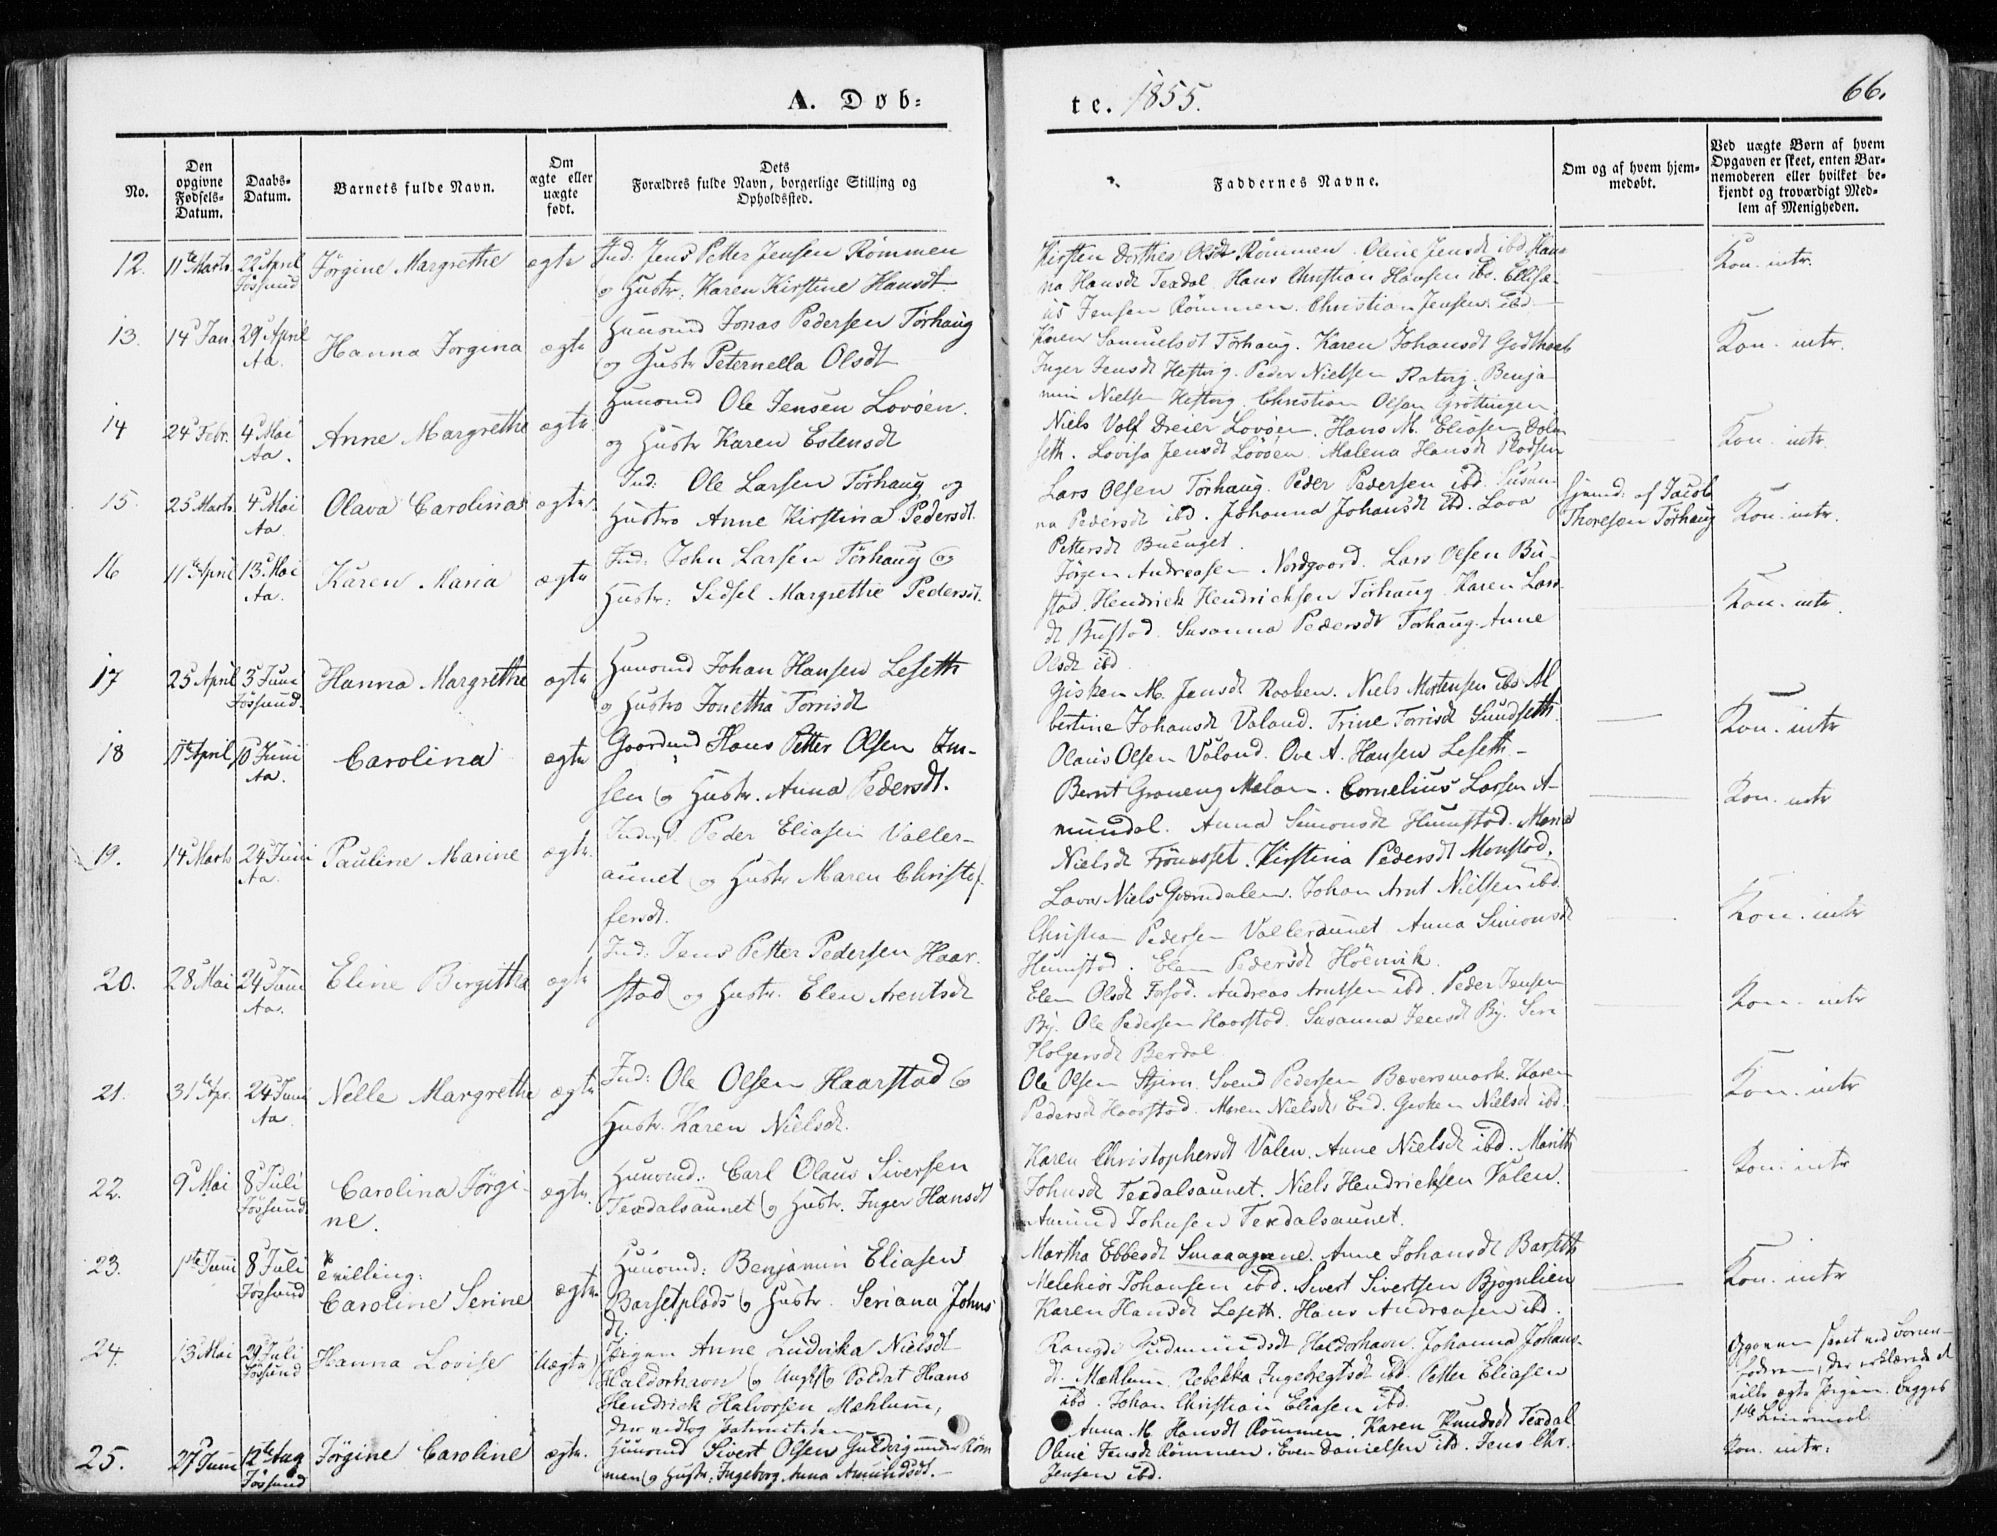 A. Døb=
te. 1855.
66.
No.
Den opgivne Fødsels-Datum.
Daabs-Datum.
Barnets fulde Navn.
Om ægte eller uægte født.
Dets Forældres fulde Navn, borgerlige Stilling og Opholdssted.
Faddernes Navne.
Om og af hvem hjemmedøbt.
Ved uægte Børn af hvem Opgaven er skeet, enten Barnemoderen eller hvilket bekjendt og troværdigt Medlem af Menigheden.
12. 11te Marts 22 April Jøssund Jørgine Margrethe ægte
Ind. Jens Petter Jensen Rømmen
og Hustr: Karen Kirstine Hansdt
Kirsten Dorthea Olsdt Rømmen. Oline Jensdt ibd. Han-
na Hansdt Texdal. Hans Christian Hansen ibd. Ellisæ-
us Jensen Rømmen. Christian Jensen ibd.
Kon. intr.
13. 14 Jan. 29 April Aa. Hanna Jorgina ægte
Huusmd Jonas Pedersen Tørhaug
og Hustr Peternella Olsdt
Karen Samuelsdt Tørhaug. Karen Johansdt Godthaab
Inger Jensdt Hestvig. Peder Nielsen Ratvig. Benja-
min Nielsen Hestvig. Christian Olsen Grøttingen
Kon. intr.
14 24 Febr. 4 Mai Aa. Anne Margrethe ægte
Huusmd Ole Jensen Lovøen.
og Hustr Karen Estensdt
Niels Volf Dreier Lovøen. Hans M. Eliasen
seth. Lovisa Jensdt Lovøen. Malena Hansdt
Kon. intr.
15. 25 Marts 4 Mai Aa. Olava Carolina ægte
Ind: Ole Larsen Tørhaug og
Hustro Anne Kirstina Pedersdt.
Lars Olsen Tørhaug. Peder Pedersen ibd. Susan-
na Pedersdt ibd. Johanna Johansdt ibd. Lava
Pettersdt Buenget.
hjemd. af Jacob
Thoresen Tørhaug
Kon. intr.
16 11te April 13 Mai Aa. Karen Maria ægte
Ind: John Larsen Tørhaug og
Hustr: Sidsel Margrethe Pedersdt.
Jørgen Andreasen Nordgaard. Lars Olsen Bu-
stad. Hendrich Hendrichsen Tørhaug. Karen Lars-
dt Bustad. Susanna Pedersdt Tørhaug. Anne
Olsdt ibd.
Kon. intr.
17 25 April 3 Juni Jøssund. Hanna Margrethe ægte
Huusmd Johan Hansen Leseth
og Hustro Jonetha Torrisdt
Gisken M. Jensdt Raaken. Niels Mortensen ibd. Al-
bertine Johansdt Valand. Trine Torrisdt Sundseth.
Olaus Olsen Valand. Ove A. Hansen Leseth.
Kon. intr
18 11te April 10 Juni Aa. Carolina ægte
Gaardmd Hans Petter Olsen Im-
sen og Hustr. Anna Pedersdt.
Bernt Graneng Melan. Cornelius Larsen A-
mundal. Anna Simonsdt Humstad. Maria
Nielsdt Frønesset. Kirstina Pedersdt Monstad.
Kon. intr
19. 14 Marts 24 Juni Aa. Pauline Marine ægte.
Peder Eliasen Valler-
aunet og Hustr Maren Christof-
fersdt.
Lava Niels Gværndalen. Johan Arnt Nielsen ibd.
Christian Pedersen Valleraunet. Anna Simonsdt
Humstad. Elen Pedersdt Høenvik.
Kon. intr
20. 28 Mai 24 Juni Aa. Eline Birgitha ægte
Ind: Jens Petter Pedersen Haar-
stad og Hustr. Elen Arentsdt
Elen Olsdt Forsod. Andreas Arntsen ibd. Peder Jensen
By. Ole Pedersen Haarstad. Susanna Jensdt By. Siri
Holgersdt Berdal.
Kon. intr
21. 31te Apr. 24 Juni Aa. Nelle Margrethe ægte
Ind: Ole Olsen Haarstad og
Hustr. Karen Nielsdt.
Ole Olsen Stjern. Svend Pedersen Bæversmark. Karen
Pedersdt Haarstad. Maren Nielsdt Eid. Gisken Nielsdt ibd.
Kon. intr
22. 9 Mai 8 Juli Jøssund. Carolina Jørgi-
ne. ægte.
Huusmd: Carl Olaus Siversen
Texdalsaunet og Hustr. Inger Hansdt
Karen Christophersdt Valen. Anne Nielsdt ibd. Marith
Johnsdt Texdalsaunet. Niels Hendrichsen Valen.
Amund Johnsen Texdalsaunet.
Kon. intr
23. 1ste Juni 8 Juli Jøssund Tvilling:
Caroline Serine ægte
Huusmd: Benjamin Eliasen
Barsetplads og Hustr. Seriana Johns-
dt
Martha Ebbesdt Smaaagrene. Anne Johansdt Barseth
Melchior Johansen ibd. Sivert Sivertsen Bjøgnlien
Karen Hansdt Leseth. Hans Andreasen ibd.
Kon. intr
24. 13 Mai 29 Juli Jøssund Hanna Lovise Uægte
Pigen Anne Ludvika Nielsdt
Haldorhavn og Ungk. og Soldat Hans
Hendrick Halvorsen Mæhlum,
der vedtog paterniteten
Rangdi Gudmundsdt Haldorhavn. Johanna Johans-
dt. Mæhlum. Rebekka Ingebregtsdt ibd. Petter Eliasen
ibd. Johan Christian Eliasen ibd.
Opgaven skeet ved Barne-
faderen, der erklærede at
ville ægte Pigen. begges
1ste Leiermaal
25. 27 Juni 12te Aug Jøssund Jørgine Caroline ægte.
Huusmd Sivert Olsen Guldvig under Røm-
men og Hustr: Ingeborg Anna Amundsdt.
Anna M. Hansdt Rømmen. Karen Knudsdt Texdal
Oline Jensdt Rømmen. Even Danielsen ibd. Jens Chr.
Jensen ibd.
Kon. intr: